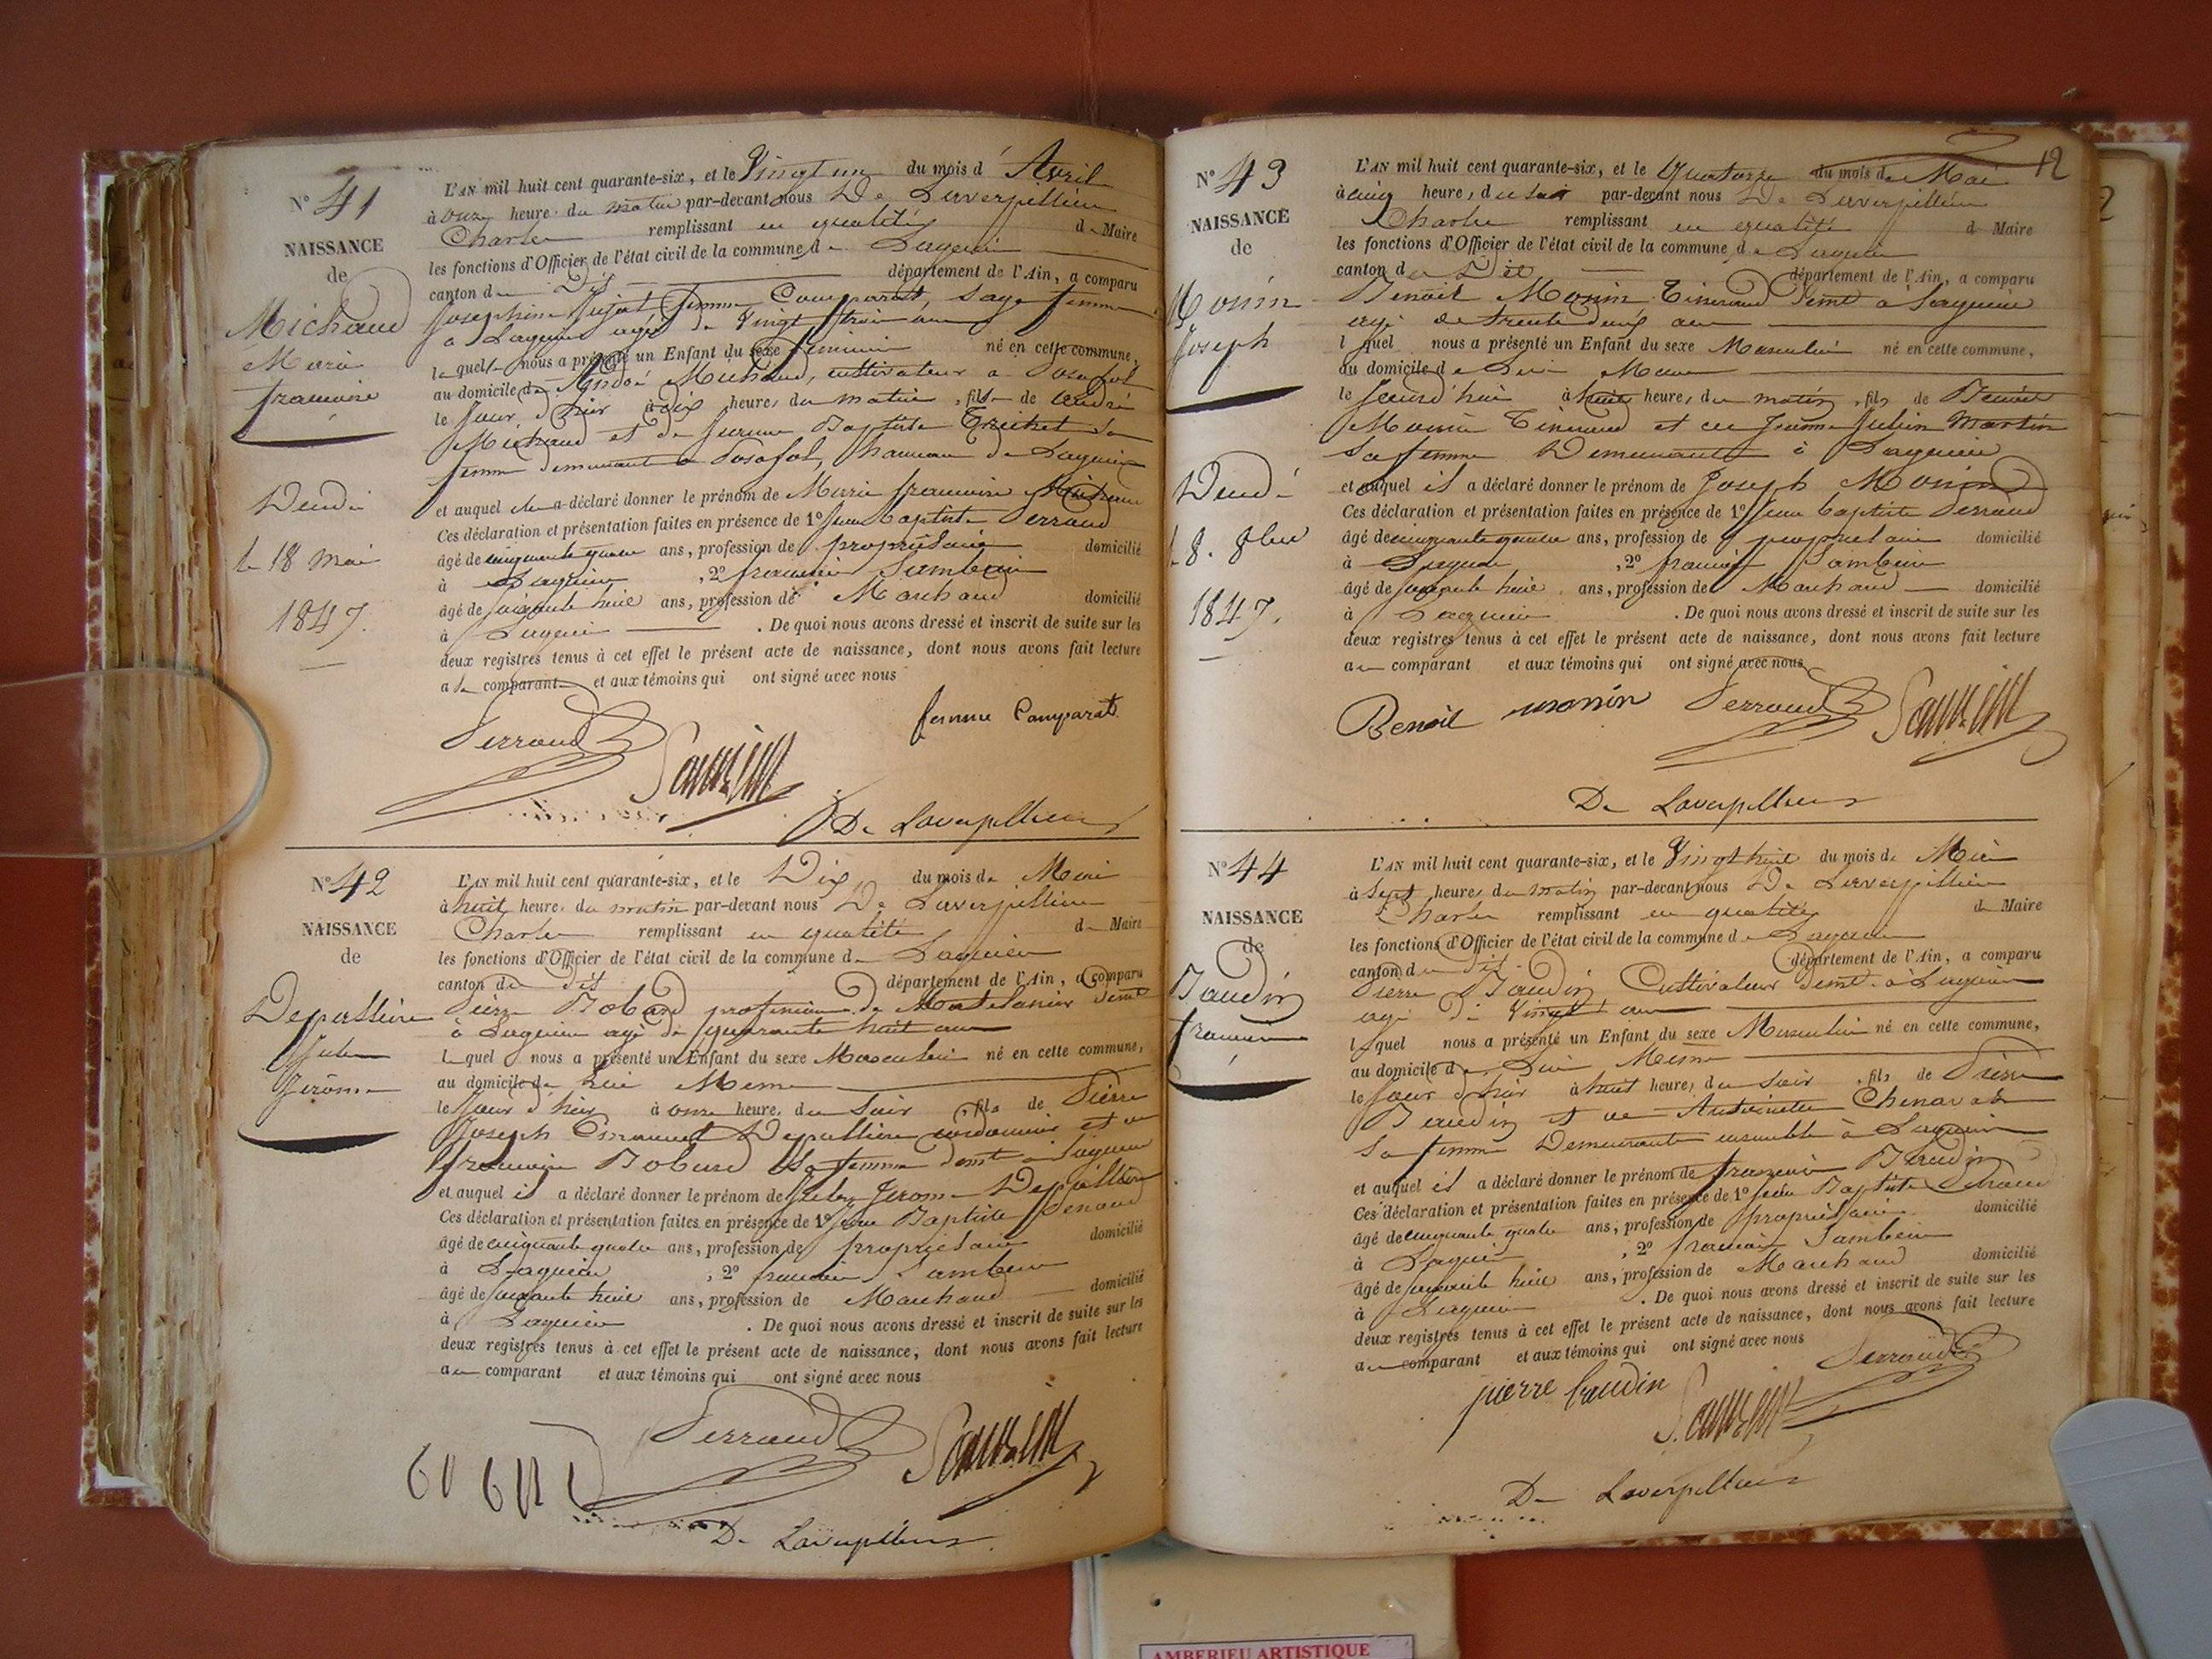 N° 41
NAISSANCE
de
Michaud
Marie
françoise
Décédée
le 18 mai
1847.
L'AN mil huit cent quarante-six, et le Vingt un du mois d'Avril
à onze heures du matin par-devant nous De Laverpillière
Charles remplissant en qualité de Maire
les fonctions d'Officier de l'état civil de la commune de Lagnieu
canton du Dit département de l'Ain, a comparu
Josephine femme Comparat, Sage femme
à Lagnieu agée de Vingt trois ans
laquelle nous a présenté un Enfant du sexe féminin né en cette commune,
au domicile de André Michaud, cultivateur a Posafol
le Jour d'hier à dix heures du matin, fille de André
Michaud et de Jeanne Baptiste Trichet Sa
femme demeurants a Posafol, hameau de Lagnieu
et auquel elle a déclaré donner le prénom de Marie françoise Michaud
Ces déclaration et présentation faites en présence de 1° Jean Baptiste Perraud
âgé de cinquante quatre ans, profession de propriétaire domicilié
à Lagnieu, 2° françois Sambin
âgé de soixante huit ans, profession de Marchand domicilié
à Lagnieu. De quoi nous avons dressé et inscrit de suite sur les
deux registres tenus à cet effet le présent acte de naissance, dont nous avons fait lecture
a la comparante et aux témoins qui ont signé avec nous
femme Comparat
Perraud
Sambin
De Laverpilliere
N° 42
NAISSANCE
de
Depullière
Jules
Jérôme
L'AN mil huit cent quarante-six, et le Dix du mois de Mai
à huit heures du matin par-devant nous De Laverpillière
Charles remplissant en qualité de Maire
les fonctions d'Officier de l'état civil de la commune de Lagnieu
canton du dit département de l'Ain, a comparu
Pierre Bobard profession de Matelassier demt
à Lagnieu agé de quarante huit ans
lequel nous a présenté un Enfant du sexe Masculin né en cette commune,
au domicile de Lui Meme
le Jour d'hier à onze heures du Soir, fils de Pierre
Joseph Emanuel Depullière cordonnier et de
françoise Bobard Sa femme demt à Lagnieu
et auquel il a déclaré donner le prénom de Jules Jerome Depullière
Ces déclaration et présentation faites en présence de 1° Jean Baptiste Perraud
âgé de cinquante quatre ans, profession de propriétaire domicilié
à Lagnieu, 2° francois Sambin
âgé de soixante huit ans, profession de Marchand domicilié
à Lagnieu. De quoi nous avons dressé et inscrit de suite sur les
deux registres tenus à cet effet le présent acte de naissance, dont nous avons fait lecture
au comparant et aux témoins qui ont signé avec nous
Perraud
Sambin
De Laverpilliere
12
N° 43
NAISSANCE
de
Monin
Joseph
Décédé
le 8. 8bre
1847.
L'AN mil huit cent quarante-six, et le Quatorze du mois de Mai
à cinq heures du soir par-devant nous De Laverpillière
Charles remplissant en qualité de Maire
les fonctions d'Officier de l'état civil de la commune de Lagnieu
canton du Dit département de l'Ain, a comparu
Benoit Monin Tisserand demt à Lagnieu
agé de trente deux ans
lequel nous a présenté un Enfant du sexe Masculin né en cette commune,
au domicile de Lui Meme
le Jourd'hui à huit heures du matin, fils de Benoit
Monin Tisserand et de Jeanne Julien Martin
Sa femme Demeurants à Lagnieu
et auquel il a déclaré donner le prénom de Joseph Monin
Ces déclaration et présentation faites en présence de 1° Jean baptiste Perraud
âgé de cinquante quatre ans, profession de propriétaire domicilié
à Lagnieu, 2° françois Sambin
âgé de soixante huit ans, profession de Marchand domicilié
à Lagnieu. De quoi nous avons dressé et inscrit de suite sur les
deux registres tenus à cet effet le présent acte de naissance, dont nous avons fait lecture
au comparant et aux témoins qui ont signé avec nous
Benoit monin Perraud Sambin
De Laverpilliere
N° 44
NAISSANCE
de
Baudin
francois
L'AN mil huit cent quarante-six, et le Vingt huit du mois de Mai
à Sept heures du matin par-devant nous De Laverpillière
Charles remplissant en qualité de Maire
les fonctions d'Officier de l'état civil de la commune de Lagnieu
canton du Dit département de l'Ain, a comparu
Pierre Baudin Cultivateur demt à Lagnieu
agé de Vingt ans
lequel nous a présenté un Enfant du sexe Masculin né en cette commune,
au domicile de Lui Meme
le Jour d'hier à huit heures du Soir, fils de Pierre
Baudin et de Antoinette Chenavat
Sa femme Demeurants ensemble à Lagnieu
et auquel il a déclaré donner le prénom de françois Baudin
Ces déclaration et présentation faites en présence de 1° Jean Baptiste Perraud
âgé de cinquante quatre ans, profession de propriétaire domicilié
à Lagnieu, 2° françois Sambin
âgé de soixante huit ans, profession de Marchand domicilié
à Lagnieu. De quoi nous avons dressé et inscrit de suite sur les
deux registres tenus à cet effet le présent acte de naissance, dont nous avons fait lecture
au comparant et aux témoins qui ont signé avec nous
pierre baudin Sambin Perraud
De Laverpilliere
AMBERIEU ARTISTIQUE